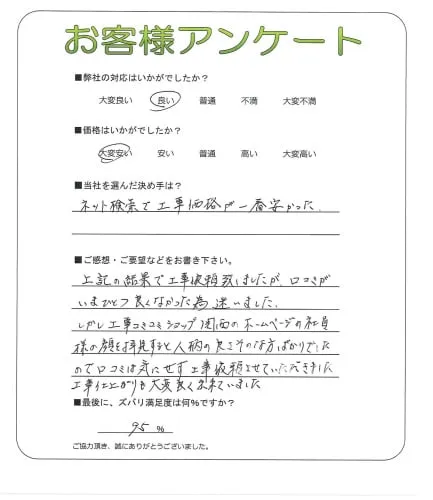 お客様アンケート
■弊社の対応はいかがでしたか？
大変良い 良い 普通 不満 大変不満
■価格はいかがでしたか？
大変安い 安い 普通 高い 大変高い
■当社を選んだ決め手は？
ネット検索で工事価格が一番安かった。
■ご感想・ご要望などをお書き下さい。
上記の結果で工事依頼致しましたが、口コミが
いまひとつ良くなかった為迷いました。
しかし工事コミコミショップ関西のホームページの社員
様の顔を拝見すると人柄の良さそうな方ばかりでした
ので口コミは気にせず工事依頼させていただきました
工事仕上がりも大変良く出来ていました
■最後に、ズバリ満足度は何％ですか？
95 ％
ご協力頂き、誠にありがとうございました。